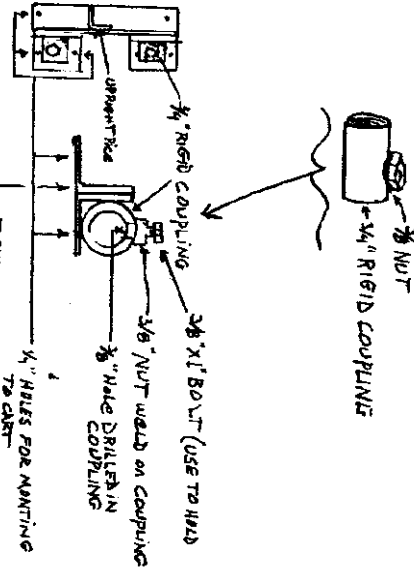 3/8 NUT
3/4" RIGID COUPLING
3/4" RIGID COUPLING
3/8" X1" BOLT (USE TO HOLD
3/8" NUT WELD ON COUPLING
3/8" HOLE DRILLED IN
COUPLING
UPRIGHT
1/4" HOLES FOR MONTING
TO CART